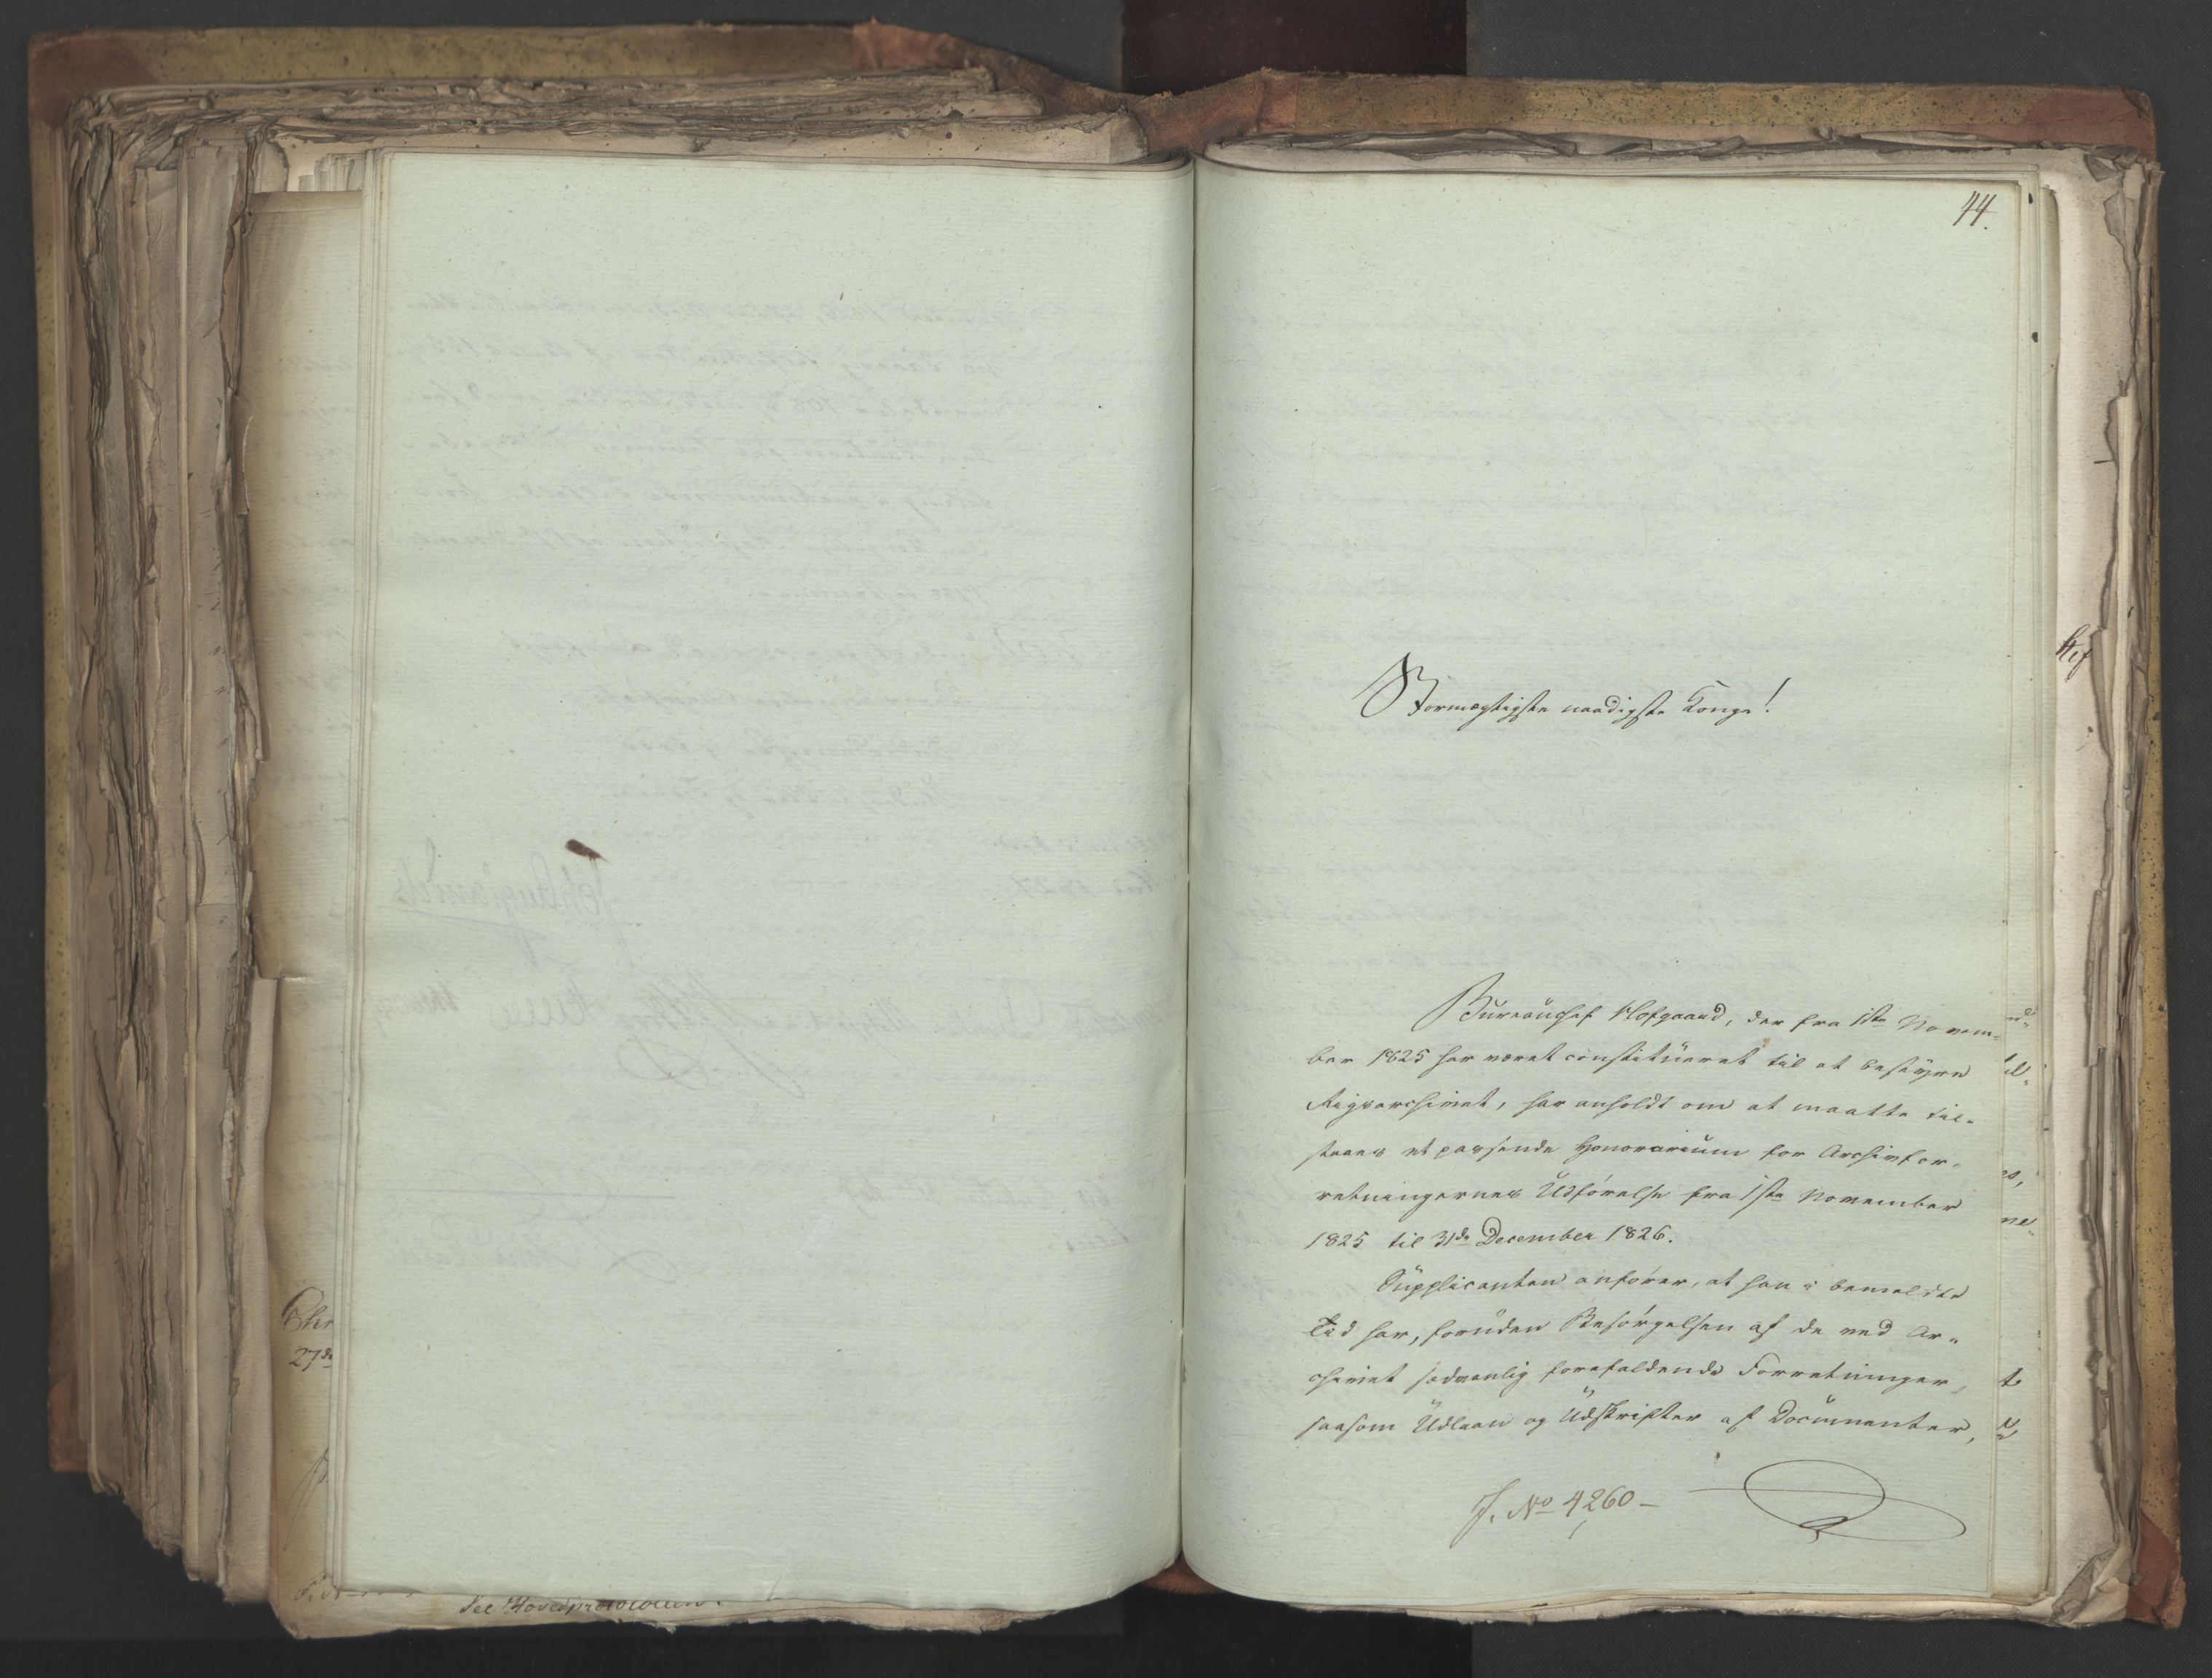 44.
Stormægtigste naadigste Konge!
Bureauchef Hofgaard, der fra 1ste Novem-
ber 1825 har været constitueret til at bestyre
Rigsarchivet, har anholdt om at maatte til-
staaes et passende Honorarium for Archivfor-
retningernes Udførelse fra 1ste November
1825 til 31de December 1826.
Supplicanten anfører, at han i bemeldte
Tid har, foruden Besørgelsen af de ved Ar-
chivet sædvanlig forefaldende Forretninger,
saasom Udlaan og Udskrifter af Documenter,
J. No 4260 -
Chr
27de
til Hovedprotocollen.